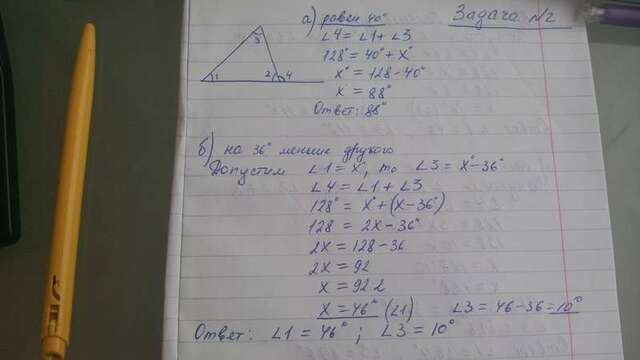 Задача №2
а) равен 40°
∠4 = ∠1 + ∠3
128° = 40° + x°
x° = 128 - 40°
x = 88°
Ответ: 88°
3
1 2 4
б) на 36° меньше другого
Допустим ∠1 = x°, то ∠3 = x° - 36°
∠4 = ∠1 + ∠3
128° = x° + (x - 36°)
128 = 2x - 36°
2x = 128 - 36
2x = 92
x = 92 2
x = 46° (∠1) ∠3 = 46 - 36 = 10°
Ответ: ∠1 = 46°; ∠3 = 10°